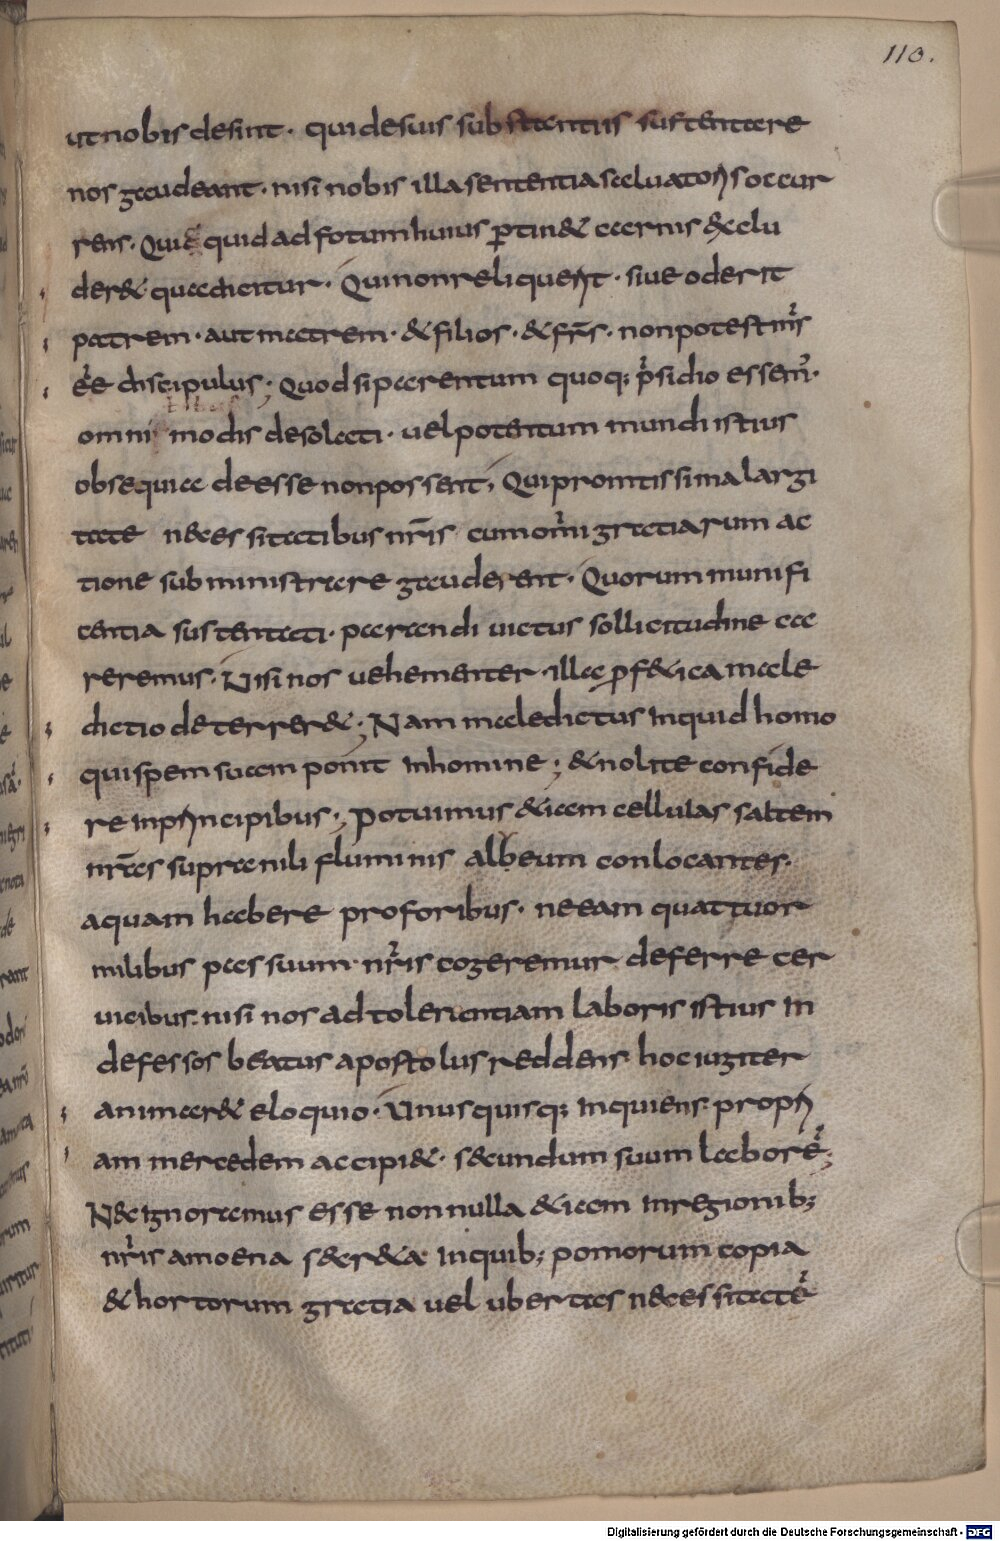 110.
ut nobis desint · qui de suis substantiis sustentare
nos gauderent · nisi nobis illa sententia saluatoris occur
rens · Quicquid ad fotum huius ꝑtinet carnis exclu
deret quae dicitur · Qui non reliquerit · siue oderit
patrem · aut matrem · & filios · & frs̄ · non potest ms̓
eē discipulus ; Quod si parentum quoq; p̓sidio essem̓ ·
omni modis desolati · uel potentum mundi istius
obsequia deesse non possent, Qui promtissima largi
tate necessitatibus nr̄is cum om̓i gratiarum ac
tione subministrare gauderent · Quorum munifi
centia sustentati · parandi uictus sollicitudine ca
reremus · Nisi nos uehementer · illa ꝓfetica male
dictio deterreret ; Nam maledictus inquid homo
qui spem suam ponit in homine ; & nolite confide
re in principibus ; Potuimus etiam cellulas saltem
nrā̄s supra nili fluminis albeum conlocantes ·
aquam habere pro foribus · ne eam quattuor
milibus passuum nr̓is cogeremur deferre cer
uicibus · nisi nos ad tolerantiam laboris istius in
defessos beatus apostolus reddens hoc iugiter
animaret eloquio · Unusquisq; inquiens propri
am mercedem accipiet · secundum suum laborē̓ ;
Nec ignoramus esse nonnulla etiam in regionib;
nr̓is amoena secreta in quib; pomorum copia
& hortorum gratia uel ubertas necessitatē̓
Digitalisierung gefördert durch die Deutsche Forschungsgemeinschaft - DFG